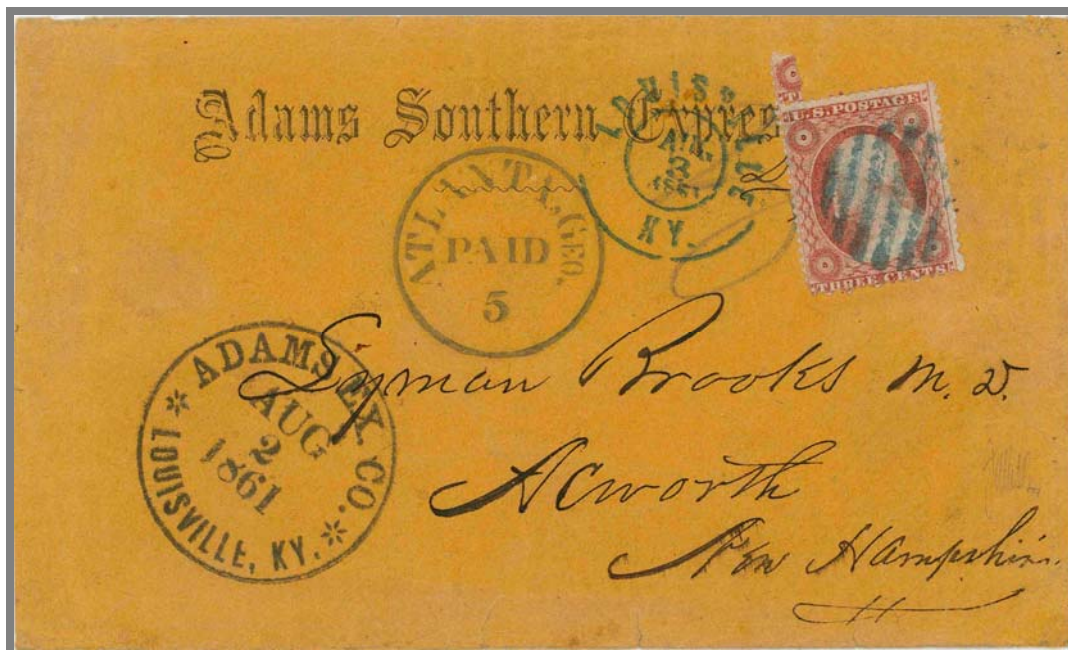 Adams Southern Expres
LOUISVILLE
KY.
U.S. POSTAGE
THREE CENTS
ATLANTA, GEO.
PAID
5
ADAMS EX. CO.
AUG
2
1861
LOUISVILLE, KY.
Lyman Brooks M.D.
Acworth
New Hampshire.